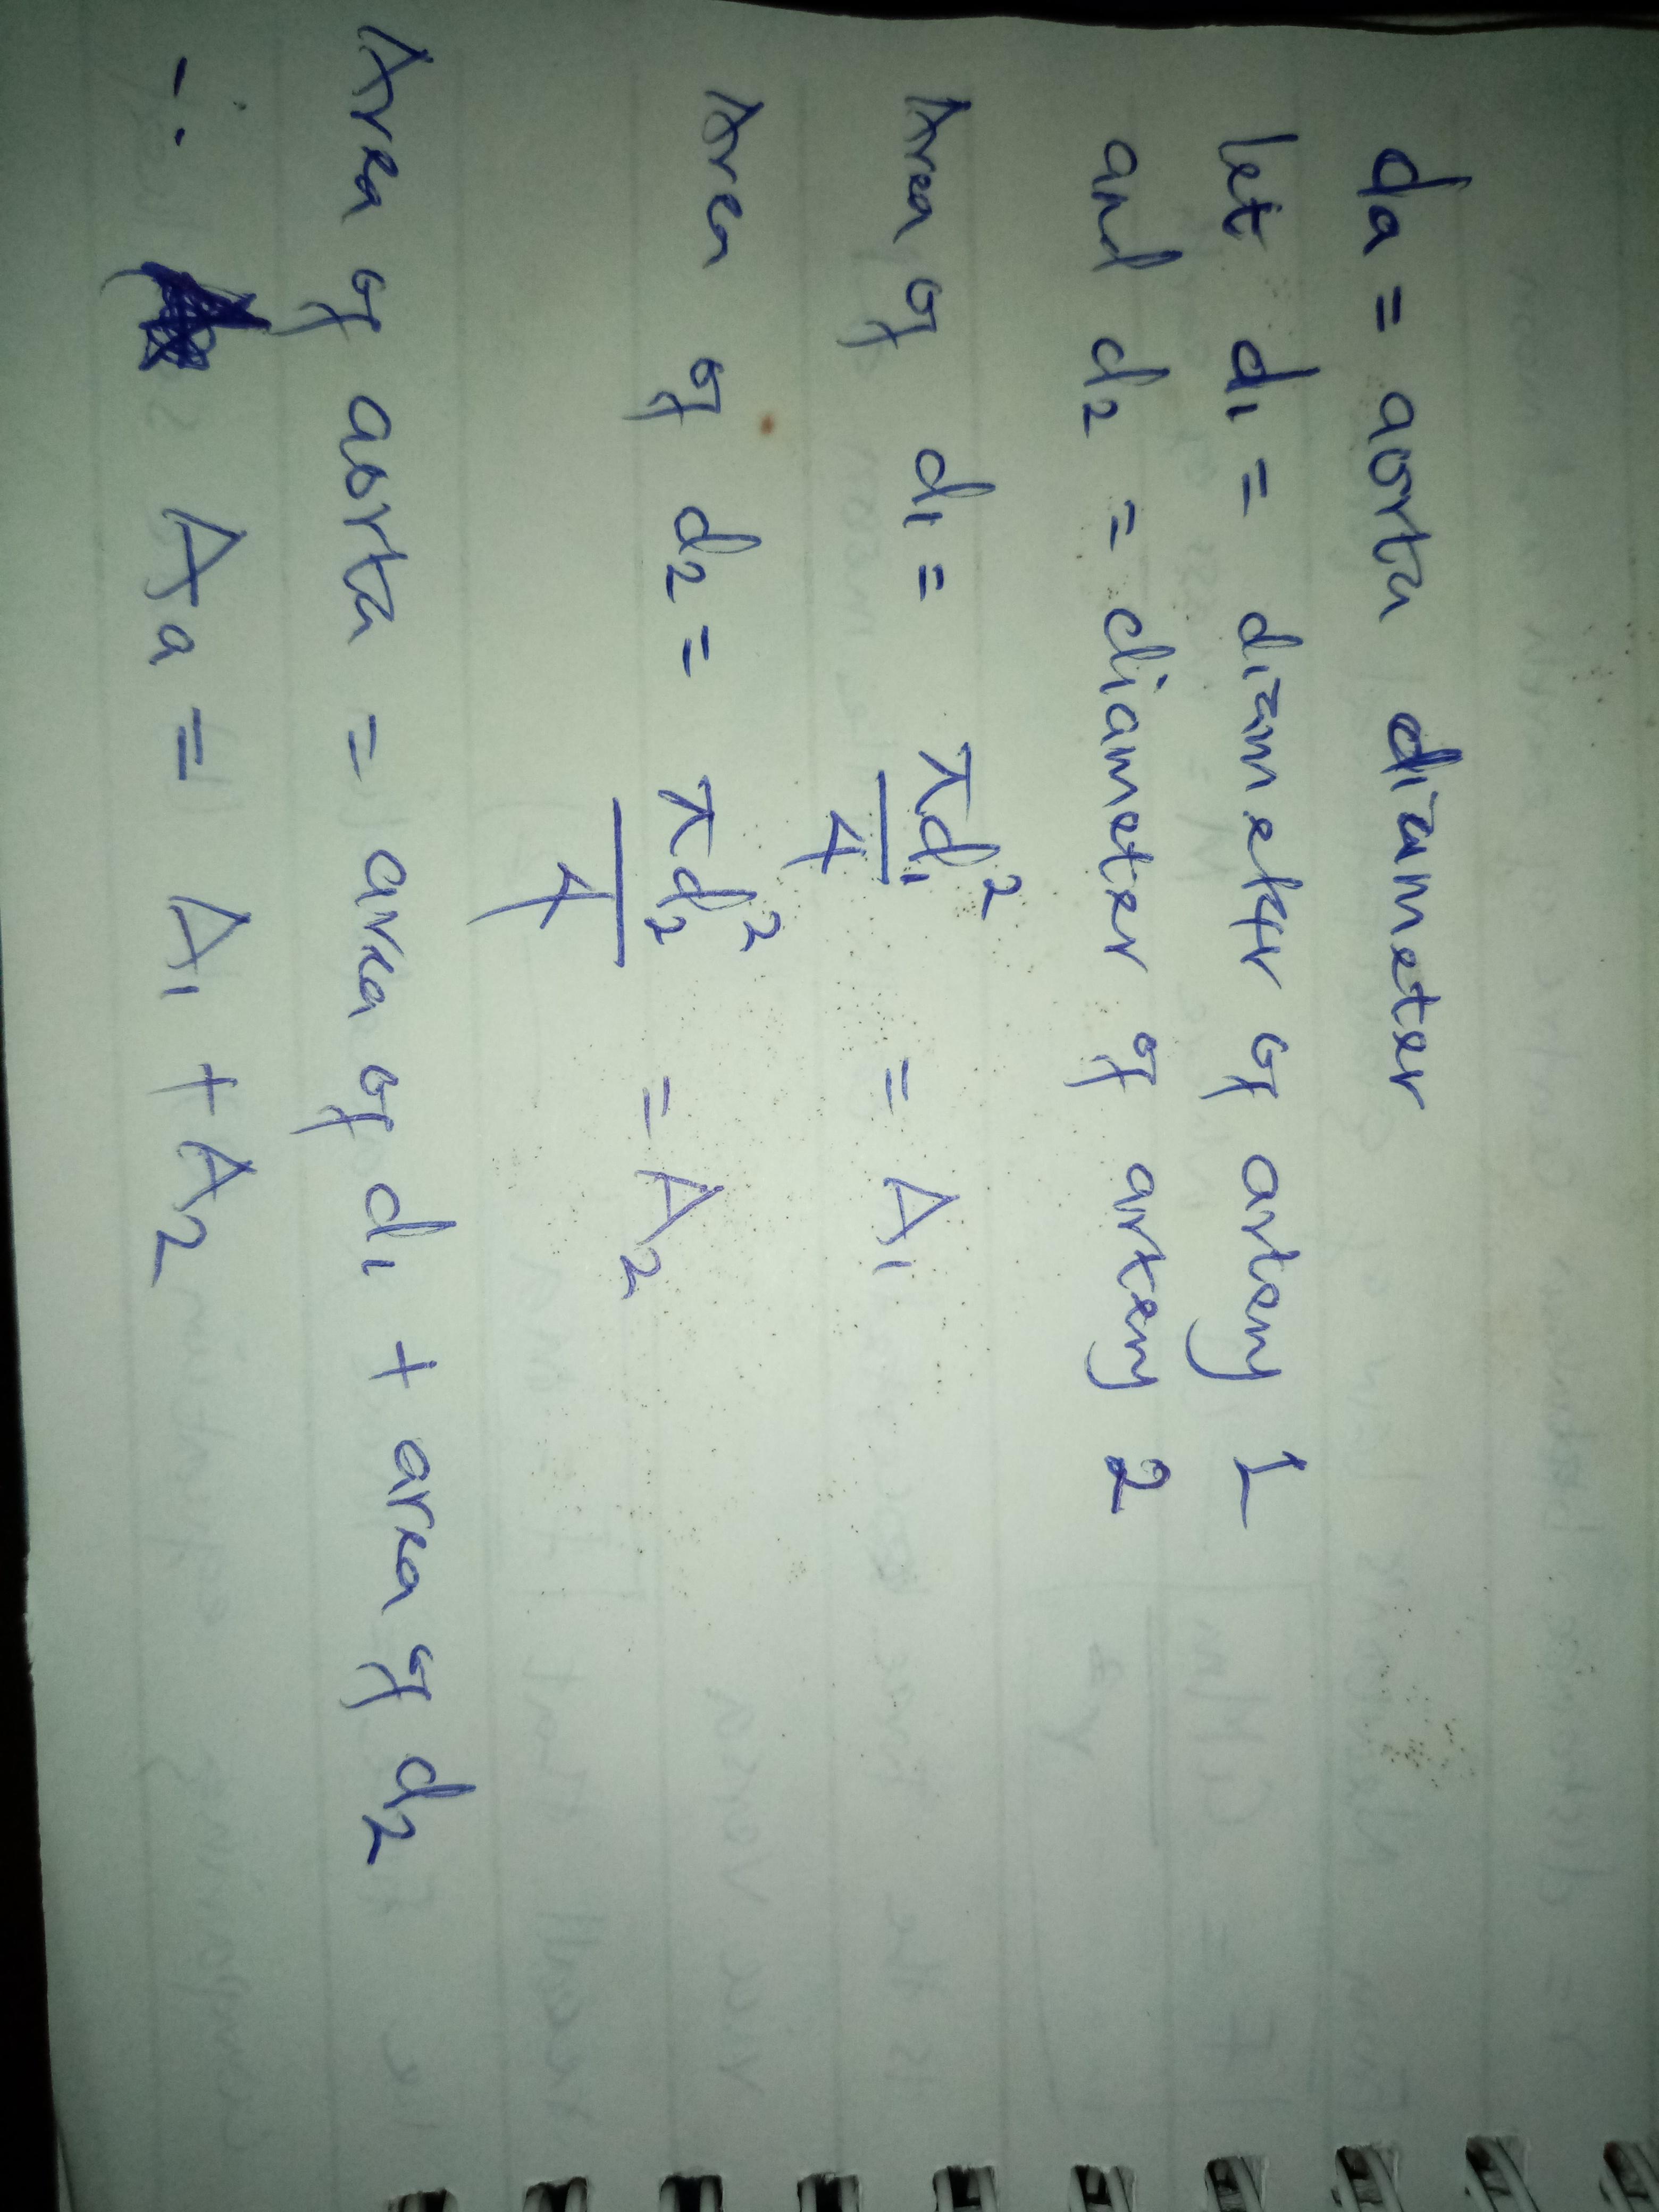 da = aorta diameter
let d₁ = diameter of artery 1
and d₂ = diameter of artery 2
Area of d₁ = πd₁²/4 = A₁
Area of d₂ = πd₂²/4 = A₂
Area of aorta = area of d₁ + area of d₂
∴ Aa = A₁ + A₂